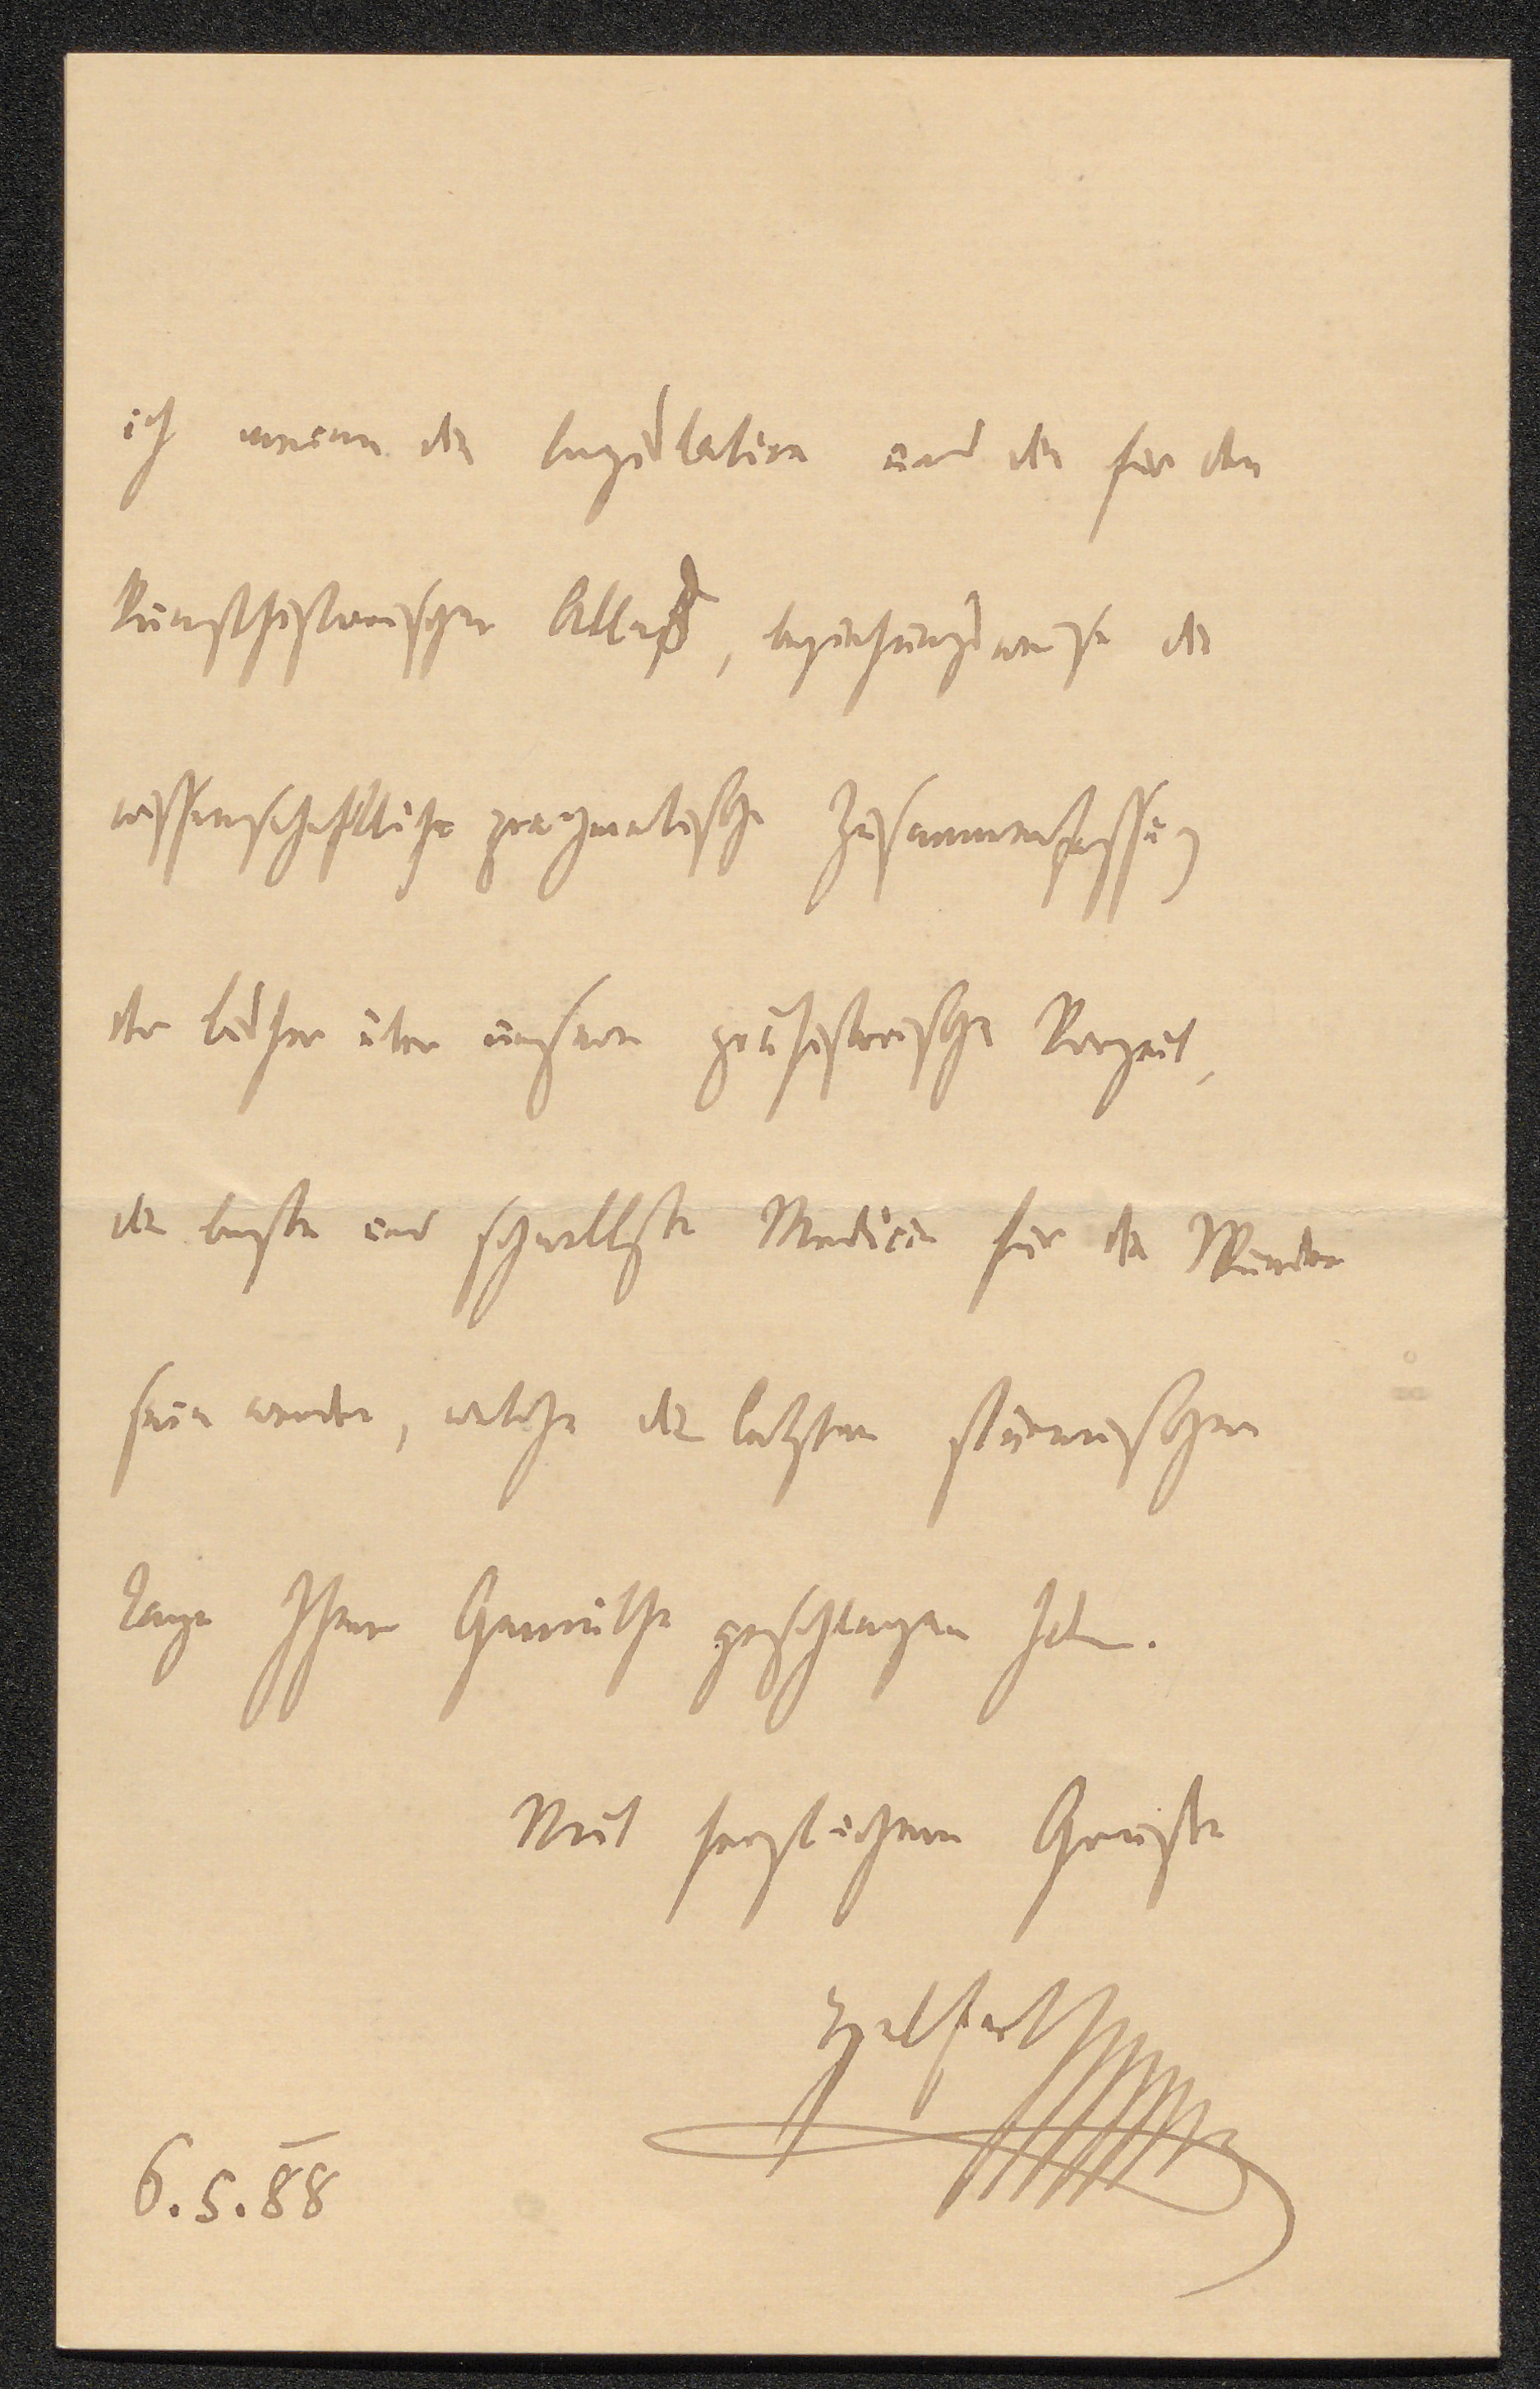 ich meine die Legislation und die für den
kunsthistorischen Atlas, beziehungsweise die
wissenschaftliche pragmatische Zusammenfassung
der bisher über unsere prähistorische Vorzeit,
die beste und schnellste Medicin für die Wunden
sein werden, welche die letzten stürmischen
Tage Ihrem Gemüthe geschlagen haben.
Mit herzlichem Gruße
Helfert
6.5.88